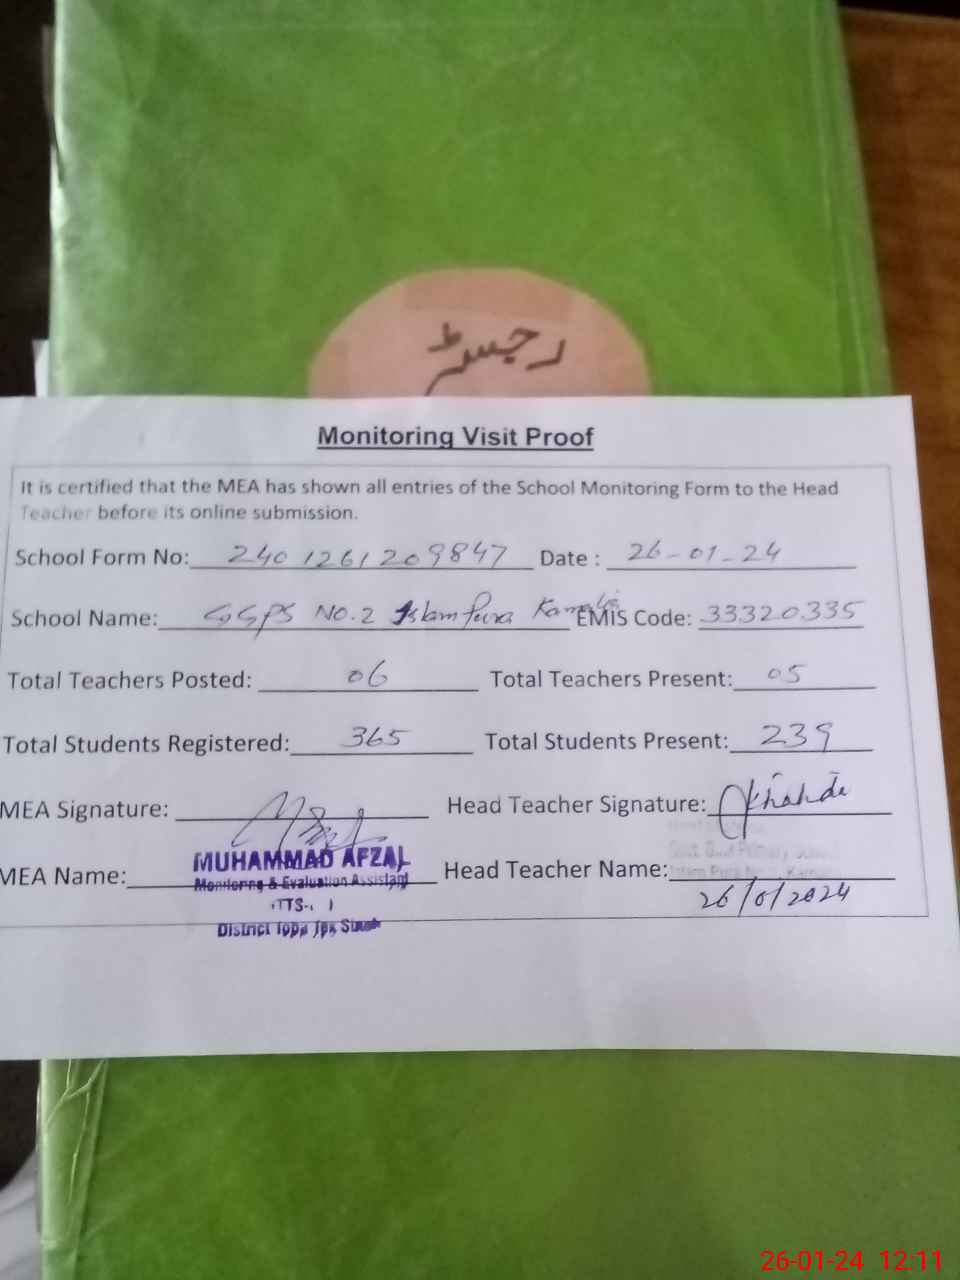 رجسٹر
Monitoring Visit Proof
It is certified that the MEA has shown all entries of the School Monitoring Form to the Head
Teacher before its online submission.
School Form No: 2401261209847 Date : 26-01-24
School Name: GGPS NO.2 Islam Pura Kamalia EMIS Code: 33320335
Total Teachers Posted: 06 Total Teachers Present: 05
Total Students Registered: 365 Total Students Present: 239
MEA Signature: Head Teacher Signature:
MEA Name: MUHAMMAD AFZAL Head Teacher Name:
Monitoring & Evaluation Assistant
District Toba Tek Singh
26/01/2024
26-01-24 12:11